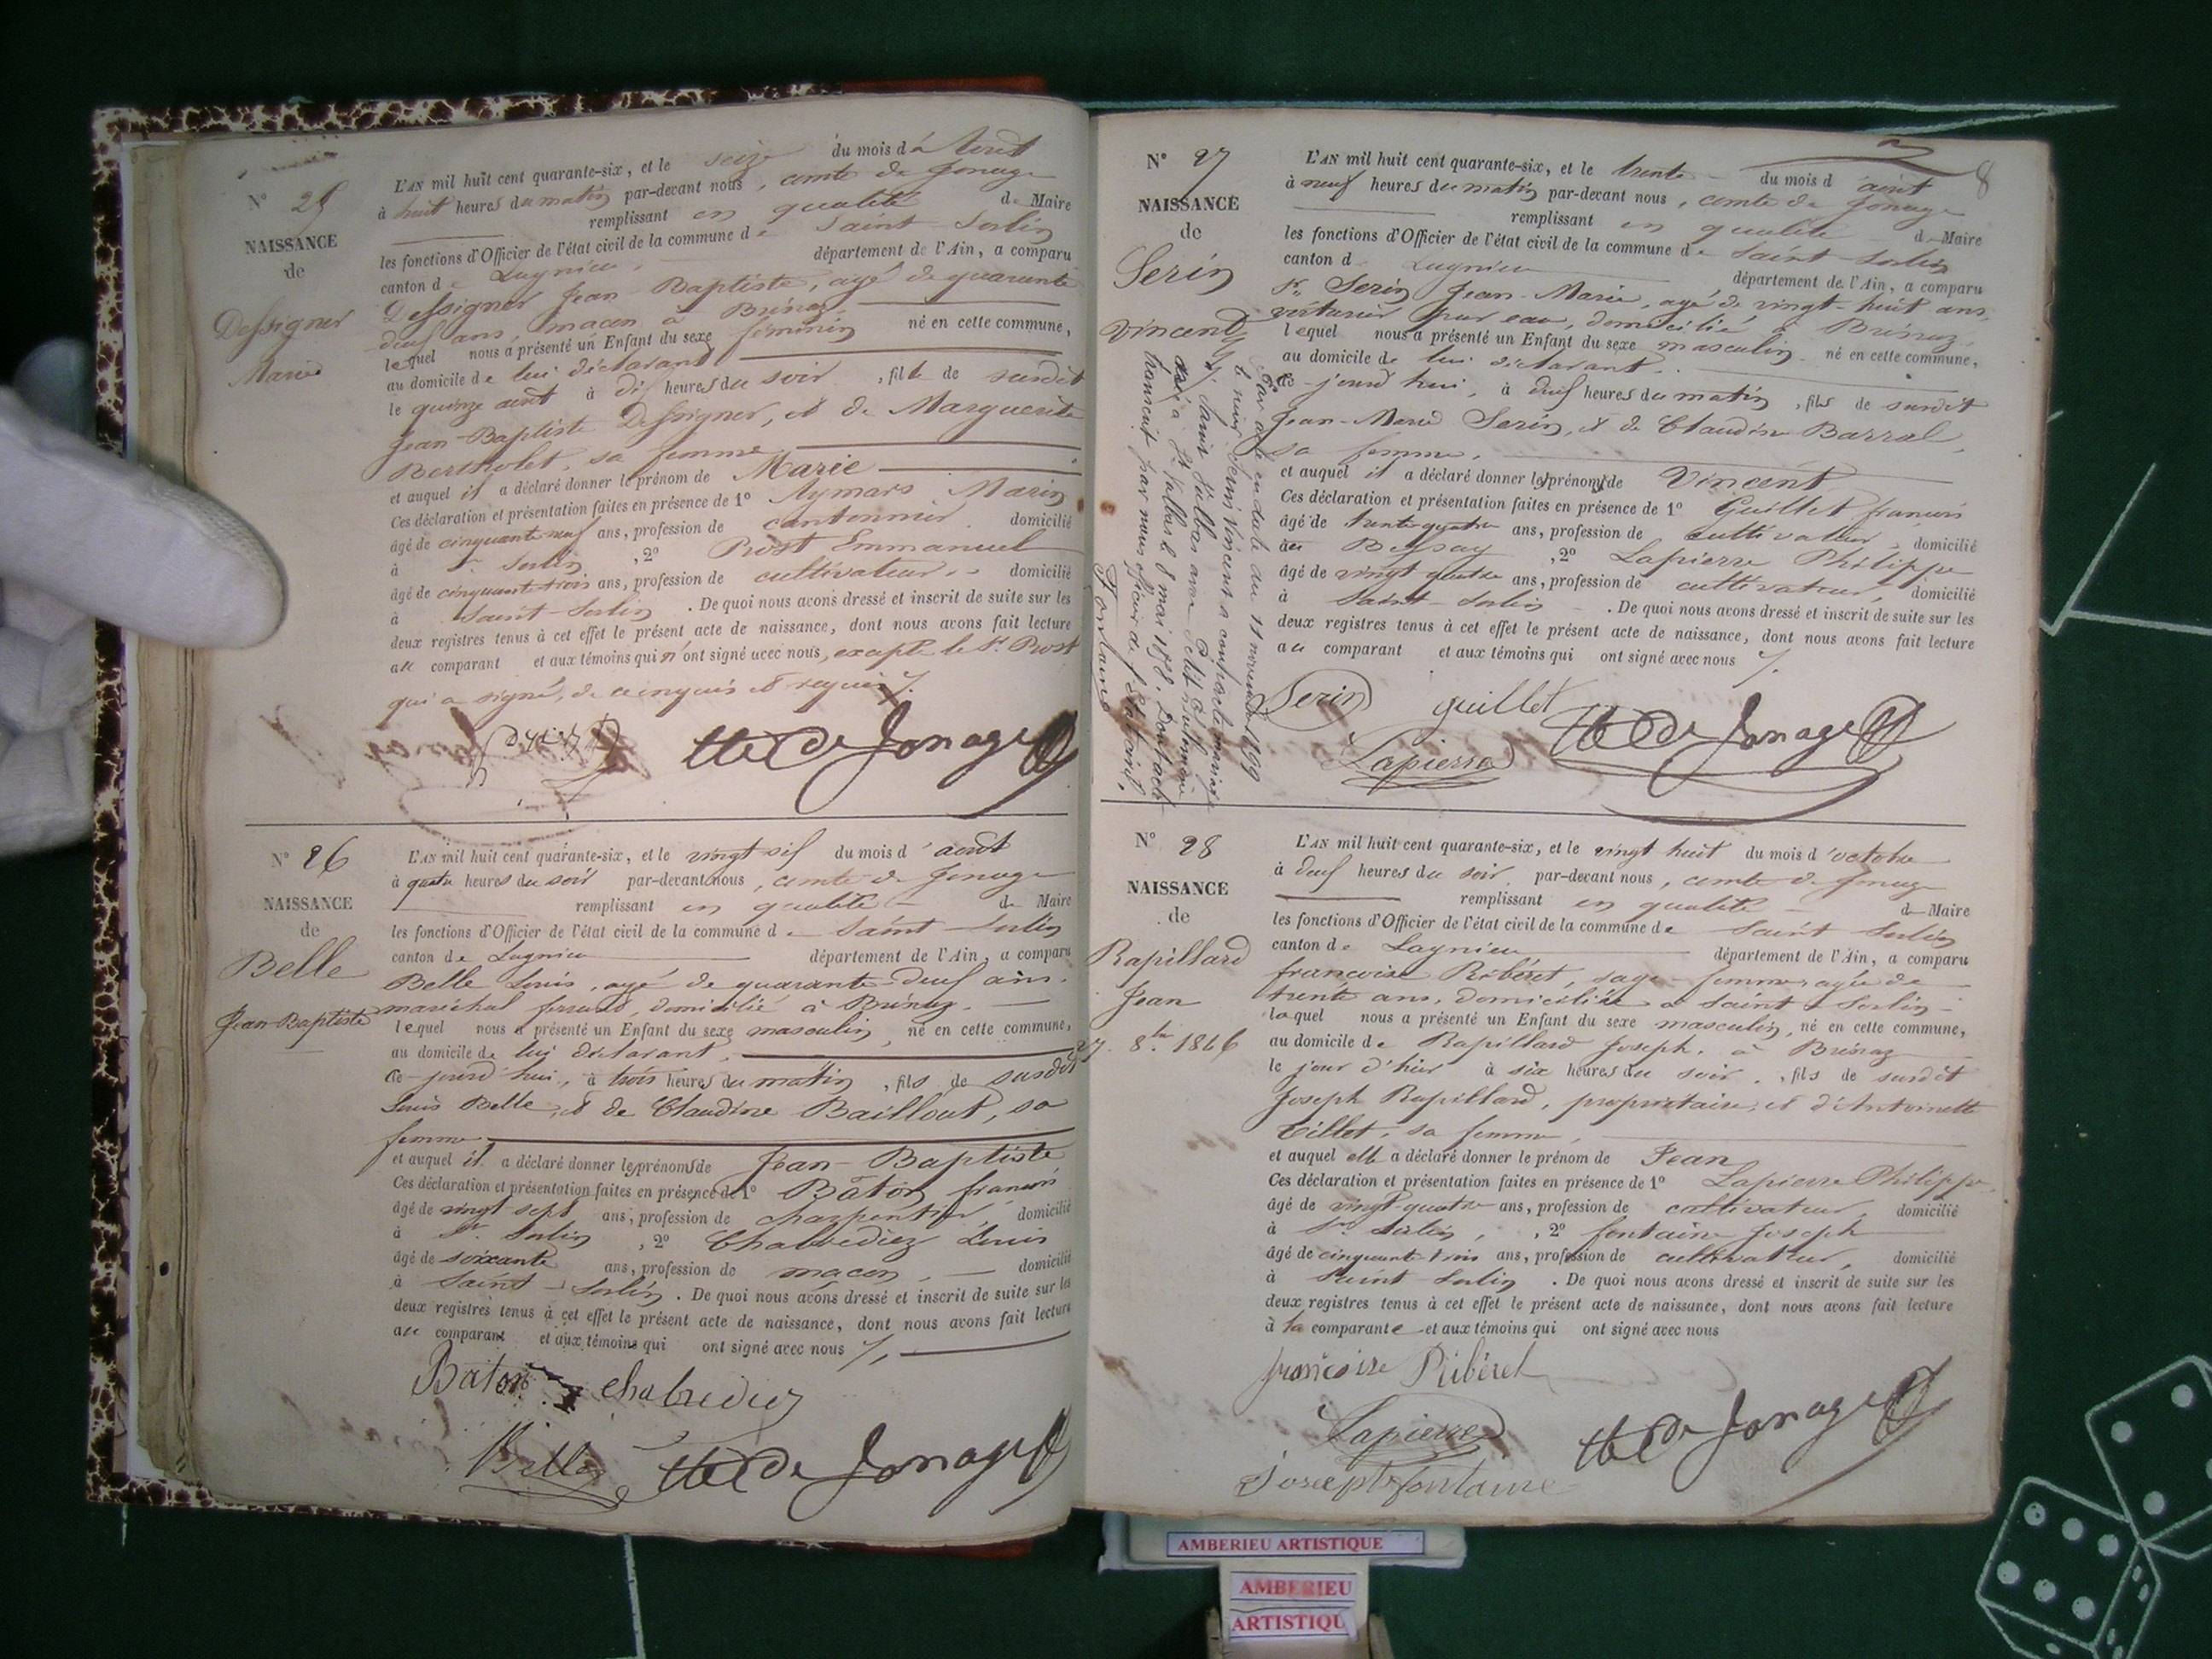 N° 25
NAISSANCE
de
Dessigner
Marie
L'AN mil huit cent quarante-six, et le seize du mois d'août
à huit heures du matin par-devant nous, comte de Jonage
remplissant en qualité de Maire
les fonctions d'Officier de l'état civil de la commune de Saint-Sorlin
canton de Lagnieu, département de l'Ain, a comparu
Dessigner Jean Baptiste, agé de quarante
deux ans, macon à Brénaz,
lequel nous a présenté un Enfant du sexe féminin né en cette commune,
au domicile de lui déclarant
le quinze août à dix heures du soir, fille de susdit
Jean-Baptiste Dessigner, et de Marguerite
Bertholet, sa femme
et auquel il a déclaré donner le prénom de Marie
Ces déclaration et présentation faites en présence de 1° Aymars Marin
âgé de cinquante neuf ans, profession de cantonnier domicilié
à St Sorlin, 2° Prost Emmanuel
âgé de cinquante-trois ans, profession de cultivateur, domicilié
à Saint-Sorlin. De quoi nous avons dressé et inscrit de suite sur les
deux registres tenus à cet effet le présent acte de naissance, dont nous avons fait lecture
au comparant et aux témoins qui n'ont signé avec nous, excepté le Sr Prost
qui a signé, de ce enquis et requis
Cte de Jonage
N° 26
NAISSANCE
de
Belle
Jean-Baptiste
L'AN mil huit cent quarante-six, et le vingt six du mois d'août
à quatre heures du soir par-devant nous, comte de Jonage
remplissant en qualité de Maire
les fonctions d'Officier de l'état civil de la commune de Saint-Sorlin
canton de Lagnieu département de l'Ain, a comparu
Belle Louis, agé de quarante-deux ans,
maréchal ferrand, domicilié à Brénaz,
lequel nous a présenté un Enfant du sexe masculin, né en cette commune,
au domicile de lui déclarant,
ce-jourd'hui, à trois heures du matin, fils de susdit
Louis Belle, et de Claudine Baillout, sa
femme
et auquel il a déclaré donner les prénoms de Jean-Baptiste
Ces déclaration et présentation faites en présence de 1° Bâton françois
âgé de vingt sept ans, profession de charpentier, domicilié
à St Sorlin, 2° Chabrediez Louis
âgé de soixante ans, profession de macon, domicilié
à Saint-Sorlin. De quoi nous avons dressé et inscrit de suite sur les
deux registres tenus à cet effet le présent acte de naissance, dont nous avons fait lecture
au comparant et aux témoins qui ont signé avec nous
Baton chabrediez
Belle Cte de Jonage
8
N° 27
NAISSANCE
de
Serin
Vincent
L'AN mil huit cent quarante-six, et le trente du mois d'août
à neuf heures du matin par-devant nous, comte de Jonage
remplissant en qualité de Maire
les fonctions d'Officier de l'état civil de la commune de Saint-Sorlin
canton d Lagnieu, département de l'Ain, a comparu
Sr Serin Jean-Marie, agé de vingt-huit ans,
voiturier par eau, domicilié à Brénaz,
lequel nous a présenté un Enfant du sexe masculin né en cette commune,
au domicile de lui déclarant.
ce-jourd'hui, à deux heures du matin, fils de susdit
Jean-Marie Serin, et de Claudine Barral,
sa femme,
et auquel il a déclaré donner le prénom de Vincent
Ces déclaration et présentation faites en présence de 1° Guillet françois
âgé de trente-quatre ans, profession de cultivateur, domicilié
au Bessay, 2° Lapierre Philippe
âgé de vingt quatre ans, profession de cultivateur, domicilié
à Saint-Sorlin. De quoi nous avons dressé et inscrit de suite sur les
deux registres tenus à cet effet le présent acte de naissance, dont nous avons fait lecture
au comparant et aux témoins qui ont signé avec nous
Serin guillet
Lapierre Cte de Jonage
Par acte en date du 11 novembre 1899
le nommé Serin Vincent a contracté mariage
avec
St Vallas le 8 mai 188. Dont acte
transcrit par nous officier de l'état civil.
Fontaine
N° 28
NAISSANCE
de
Rapillard
Jean
27. 8bre 1846
L'AN mil huit cent quarante-six, et le vingt huit du mois d'octobre
à deux heures du soir par-devant nous, comte de Jonage
remplissant en qualité de Maire
les fonctions d'Officier de l'état civil de la commune de Saint Sorlin
canton de Lagnieu département de l'Ain, a comparu
françoise Ribéret, sage-femme agée de
trente ans, domiciliée à Saint-Sorlin
laquel nous a présenté un Enfant du sexe masculin, né en cette commune,
au domicile de Rapillard Joseph, à Brénaz
le jour d'hier à six heures du soir, fils de susdit
Joseph Rapillard, propriétaire, et d'Antoinette
Tillet, sa femme,
et auquel elle a déclaré donner le prénom de Jean
Ces déclaration et présentation faites en présence de 1° Lapierre Philippe,
âgé de vingt-quatre ans, profession de cultivateur, domicilié
à St Sorlin, 2° fontaine Joseph
âgé de cinquante-trois ans, profession de cultivateur, domicilié
à Saint-Sorlin. De quoi nous avons dressé et inscrit de suite sur les
deux registres tenus à cet effet le présent acte de naissance, dont nous avons fait lecture
à la comparante et aux témoins qui ont signé avec nous
françoise Ribéret
Lapierre Cte de Jonage
Joseph fontaine
AMBERIEU ARTISTIQUE
AMBERIEU
ARTISTIQU